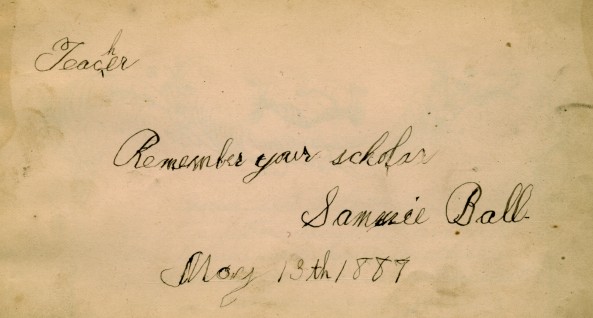 Teacher
Remember your scholar
Sammie Ball
May 13th 1887